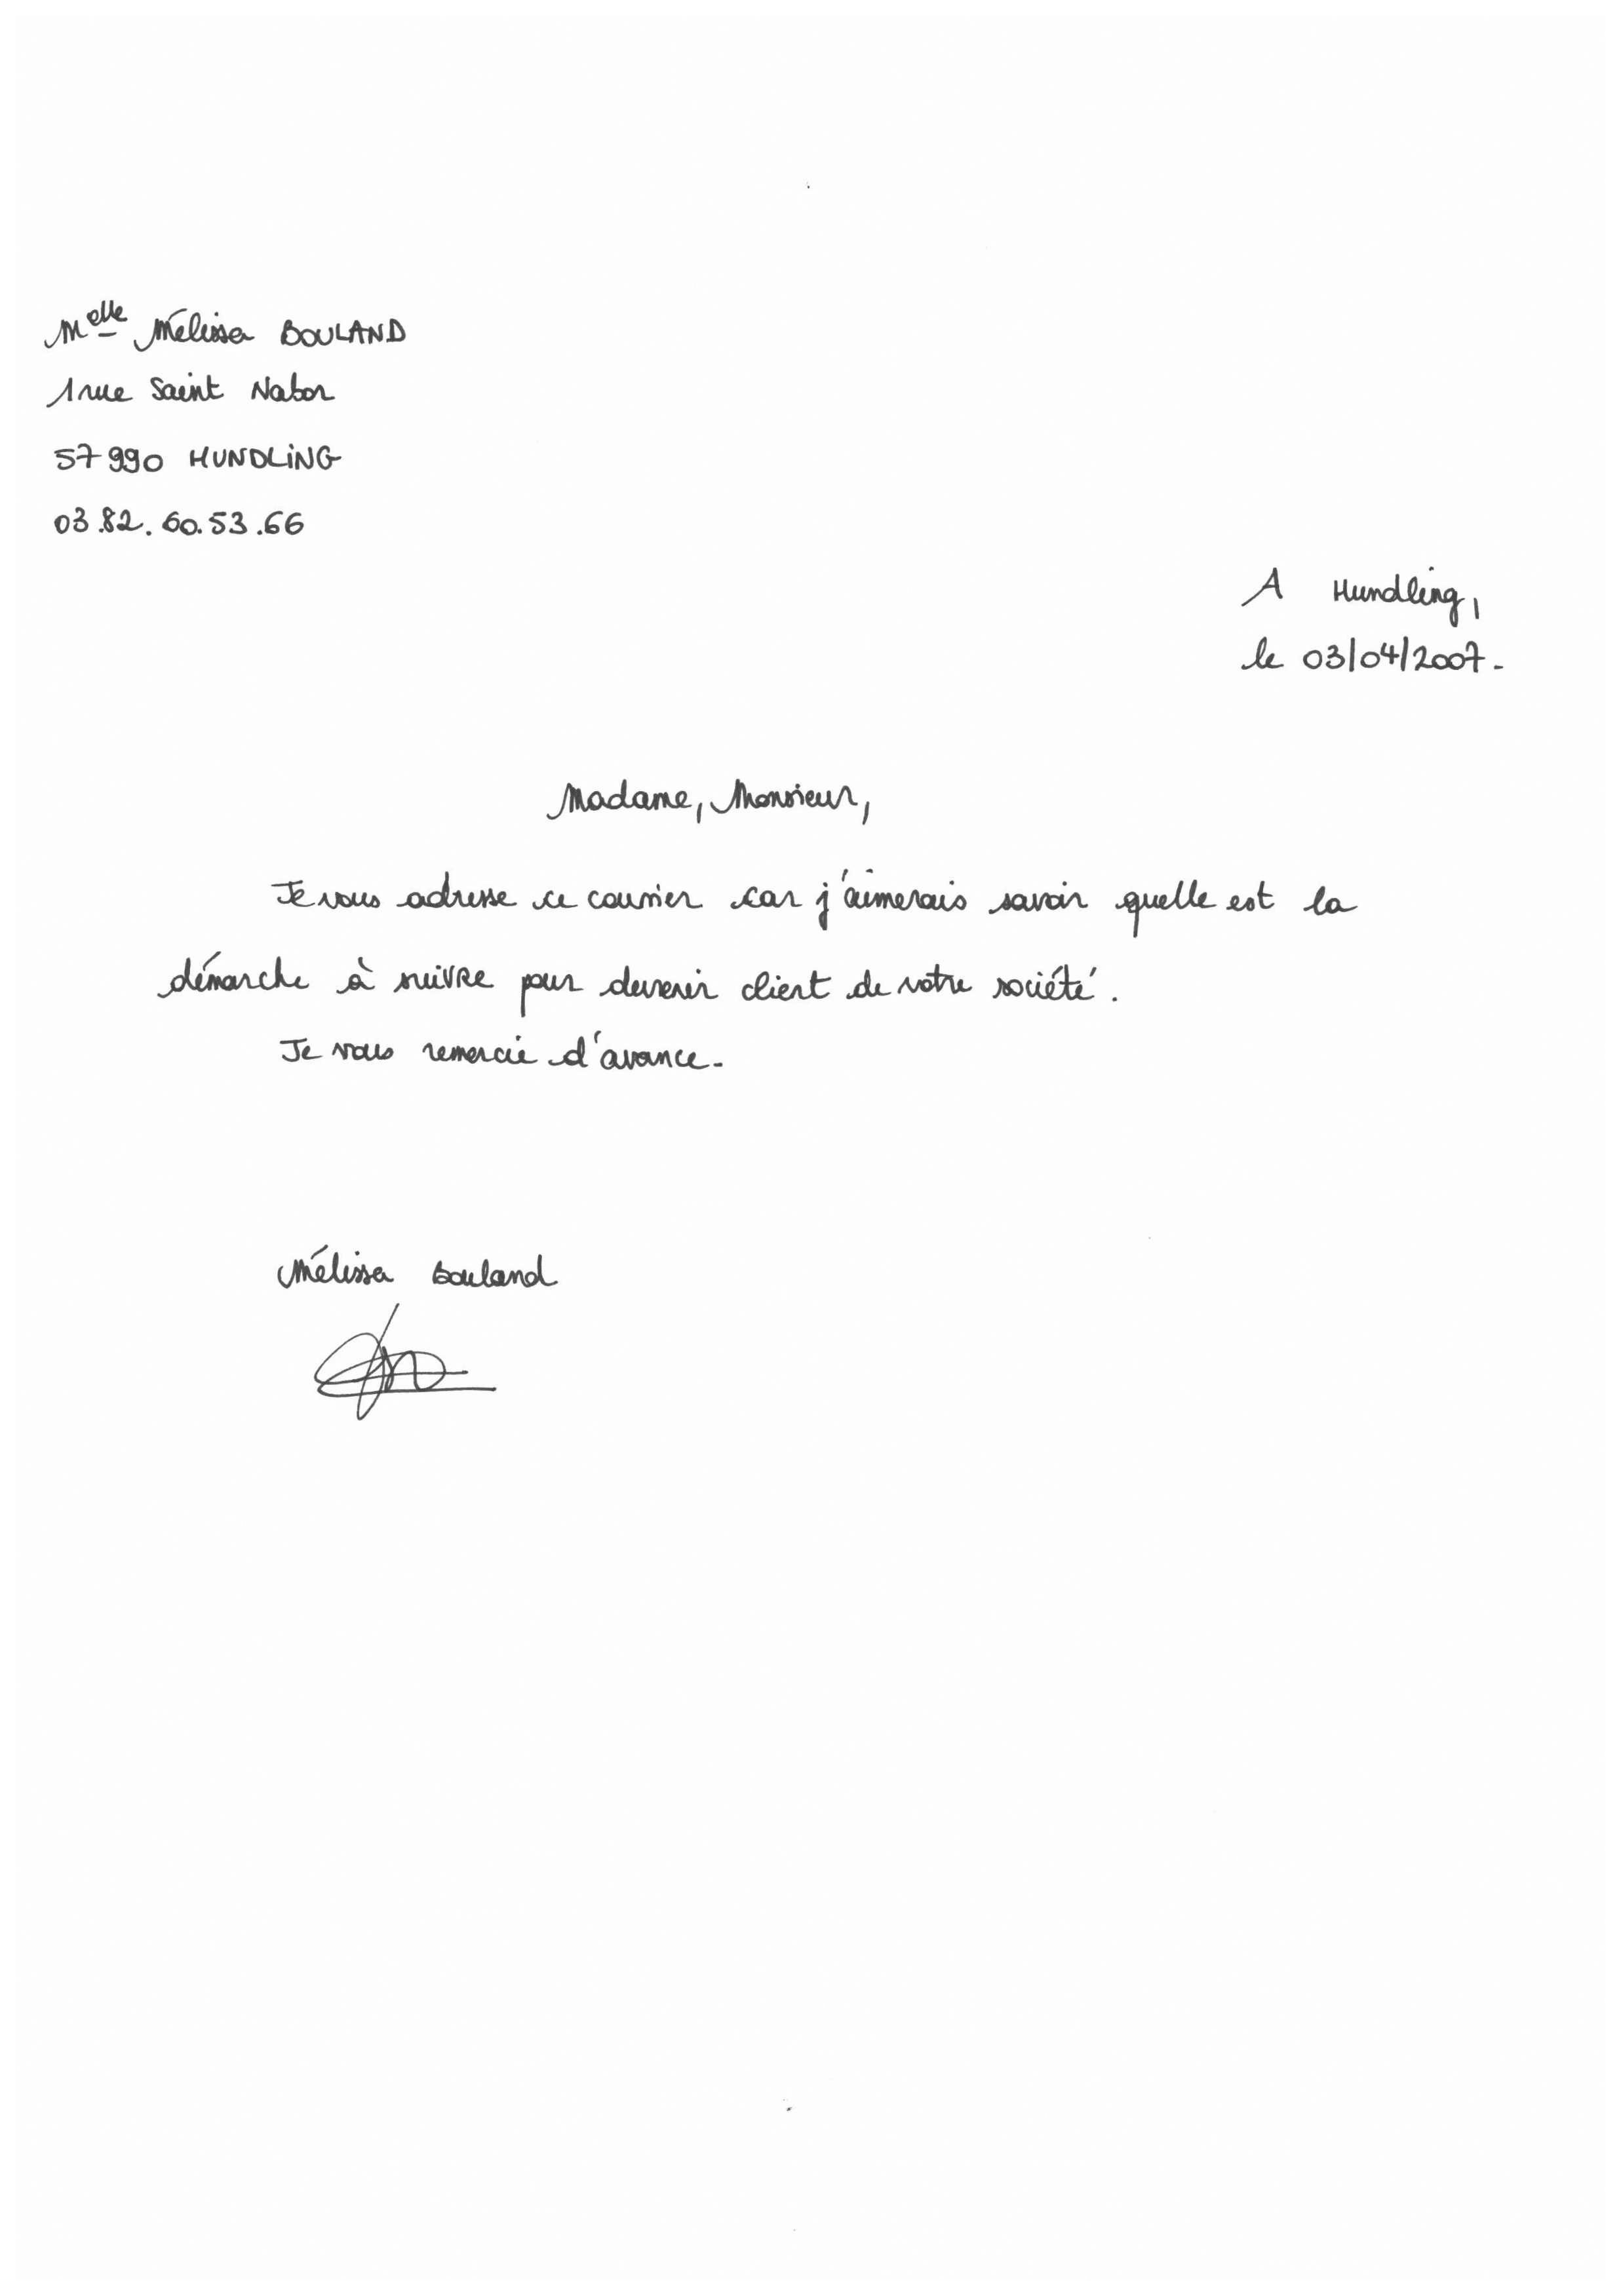 Melle Mélissa BOULAND
1 rue Saint Nabor
57990 HUNDLING
03.82.60.53.66
A Hundling,
le 03/04/2007.
Madame, Monsieur,
Je vous adresse ce courrier car j'aimerais savoir quelle est la
démarche à suivre pour devenir client de votre société.
Je vous remercie d'avance.
Mélissa Bouland